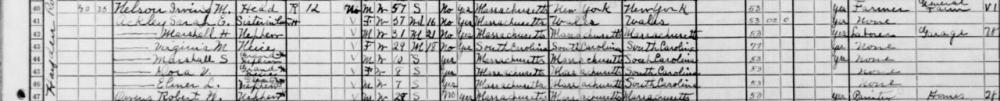 40 30 35 Nelson Irving M. Head R 12 No M W 57 S No Yes Massachusetts New York New York 53 Yes Farmer General Farm
41 Ackley Sarah E. Sister in Law V F W 57 Wd 16 No Yes Massachusetts Wales Wales 53 Yes None
42 — Marshall H Nephew V M W 31 M 21 No Yes Massachusetts Massachusetts Massachusetts 53 Yes Laborer Garage
43 — Virginia M Niece V F W 29 M 18 No Yes South Carolina South Carolina South Carolina 77 Yes None
44 — Marshall S Grand Nephew V M W 10 S Yes Massachusetts Massachusetts South Carolina 53 Yes None
45 — Grand Niece V F W 8 S Yes Massachusetts Massachusetts South Carolina 53 None
46 — Elmer L. Grand Nephew V M W 7 S Yes Massachusetts Massachusetts South Carolina 53 None
47 Robert W. Nephew V M W 28 S No Yes Massachusetts Massachusetts Massachusetts 53 Yes Painter Homes